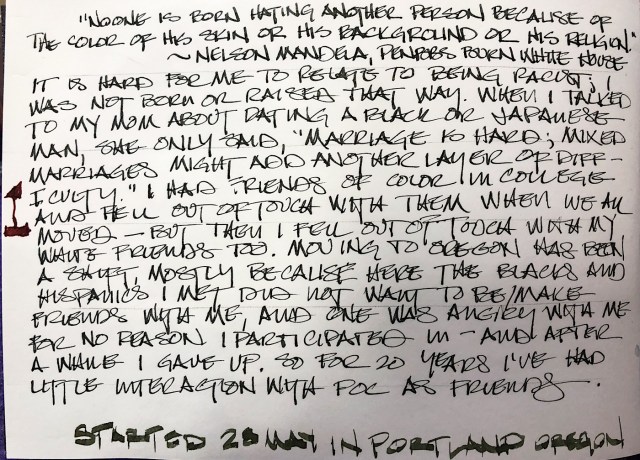 "NO ONE IS BORN HATING ANOTHER PERSON BECAUSE OF
THE COLOR OF HIS SKIN OR HIS BACKGROUND OR HIS RELIGION."
~ NELSON MANDELA, WHITE HOUSE
IT IS HARD FOR ME TO RELATE TO BEING RACIST; I
WAS NOT BORN OR RAISED THAT WAY. WHEN I TALKED
TO MY MOM ABOUT DATING A BLACK OR JAPANESE
MAN, SHE ONLY SAID, "MARRIAGE IS HARD; MIXED
MARRIAGES MIGHT ADD ANOTHER LAYER OF DIFF-
ICULTY." I HAD FRIENDS OF COLOR IN COLLEGE
AND FELL OUT OF TOUCH WITH THEM WHEN WE ALL
MOVED - BUT THEN I FELL OUT OF TOUCH WITH MY
WHITE FRIENDS TOO. MOVING TO OREGON HAS BEEN
A SHIFT, MOSTLY BECAUSE HERE THE BLACKS AND
HISPANICS I MET DID NOT WANT TO BE/MAKE
FRIENDS WITH ME, AND ONE WAS ANGRY WITH ME
FOR NO REASON I PARTICIPATED IN - AND AFTER
A WHILE I GAVE UP. SO FOR 20 YEARS I'VE HAD
LITTLE INTERACTION WITH POC AS FRIENDS.
STARTED 28 MAY IN PORTLAND OREGON